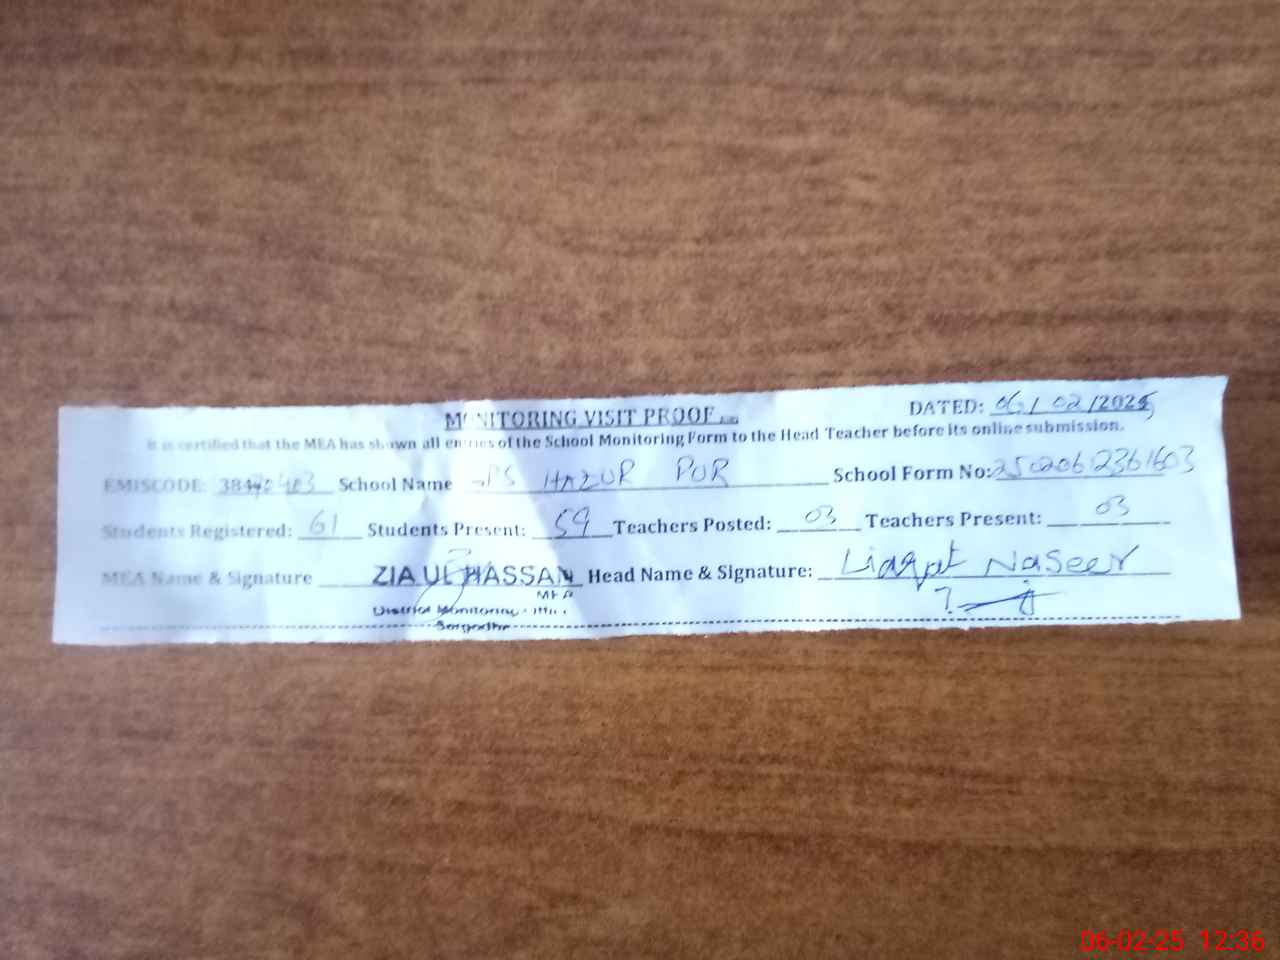 MONITORING VISIT PROOF
DATED: 06/02/2025
It is certified that the MEA has shown all entries of the School Monitoring Form to the Head Teacher before its online submission.
EMISCODE: School Name PS HAZUR PUR School Form No: 2502062361603
Students Registered: 61 Students Present: 59 Teachers Posted: 03 Teachers Present: 03
MEA Name & Signature ZIA UL HASSAN Head Name & Signature: Liaqat Naseer
MEA
District Monitoring Office
Sargodha
06-02-25 12:36